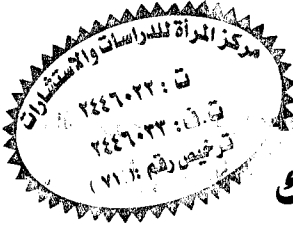 مركز المرأة للدراسات والاستشارات
ت : ٢٤٤٦٠٢٢
ت.ف: ٢٤٤٦٠٣٣
ترخيص رقم : ( ٧١ )